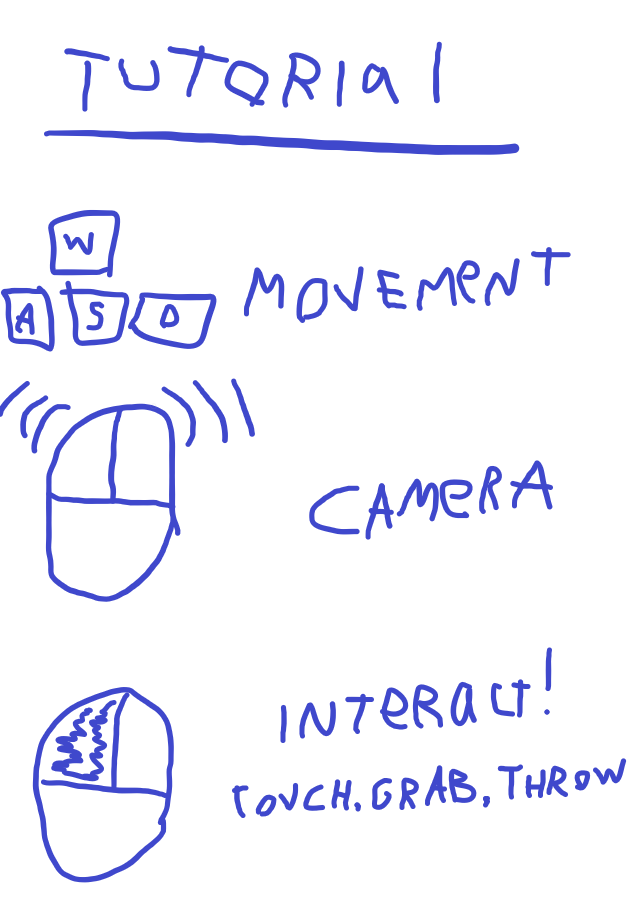 TUTORIal
W
A S D
MOVEMeNT
CAMeRA
INTeRAcT!
TOUCH, GRAB, THROW